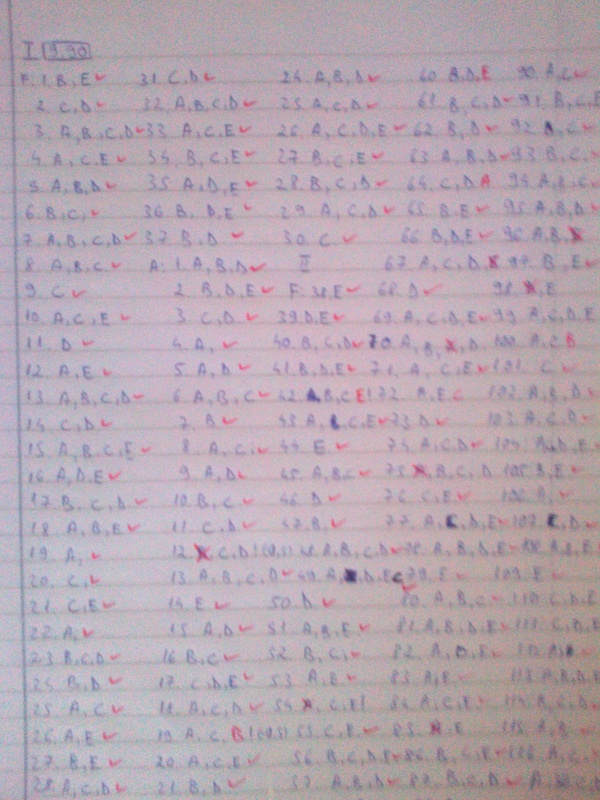 I 9.90
F. 1. B, E 31. C, D 24. A, B, D 60. B, D, E 90. A, C
2. C, D 32. A, B, C, D 25. A, C, D 61. B, C, D 91. B, C, E
3. A, B, C, D 33. A, C, E 26. A, C, D, E 62. B, D 92. C
4. A, C, E 34. B, C, E 27. B, C, E 63. A, B, D 93. B, C
5. A, B, D 35. A, D, E 28. B, C, D 64. C, D A 94. A, B, C
6. B, C 36. B, D, E 29. A, C, D 65. B, E 95. A, B, D
7. A, B, C, D 37. B, D 30. C 66. B, D, E 96. A, B
8. A, B, C A: 1. A, B, D II 67. A, C, D 97. B, E
9. C 2. B, D, E F: 38. E 68. D 98. E
10. A, C, E 3. C, D 39. D, E 69. A, C, D, E 99. A, C, D, E
11. D 4. A, 40. B, C, D 70. A, B, D 100. A, C B
12. A, E 5. A, D 41. B, D, E 71. A, C, E 101. C
13. A, B, C, D 6. A, B, C 42. B, C E! 72. A, E, C 102. A, B, D
14. C, D 7. B 43. A, C, E 73. D 103. A, C, D
15. A, B, C, E 8. A, C 44. E 74. A, C, D 104. D, E
16. A, D, E 9. A, D 45. A, B, C 75. B, C, D 105. B, E
17. B, C, D 10. B, C 46. D 76. C, E 106. A,
18. A, B, E 11. C, D 47. B, 77. A, C, D, E 107. C, D
19. A, 12. C, D! (0,5) 48. A, B, C, D 78. A, B, D, E 108. A, B, E
20. C, 13. A, B, C, D 49. A, D, E 79. E 109. E
21. C, E 14. E 50. D 80. A, B, C 110. C, D, E
22. A, 15. A, D 51. A, B, E 81. A, B, D, E 111. C, D, E
23. B, C, D 16. B, C 52. B, C, 82. A, D, E 112. A
24. B, D 17. C, D, E 53. A, E 83. A, E 113. A, B, D, E
25. A, C 18. A, C, D 54. C, E! 84. A, C, E 114. B, C, D
26. A, E 19. A, C B! (0,5) 55. C, E 85. E 115. A, B
27. B, E 20. A, C, E 56. B, C, D, E 86. B, C, E 116. A, C
28. A, C, D 21. B, D 57. A, B, D 87. B, C, D